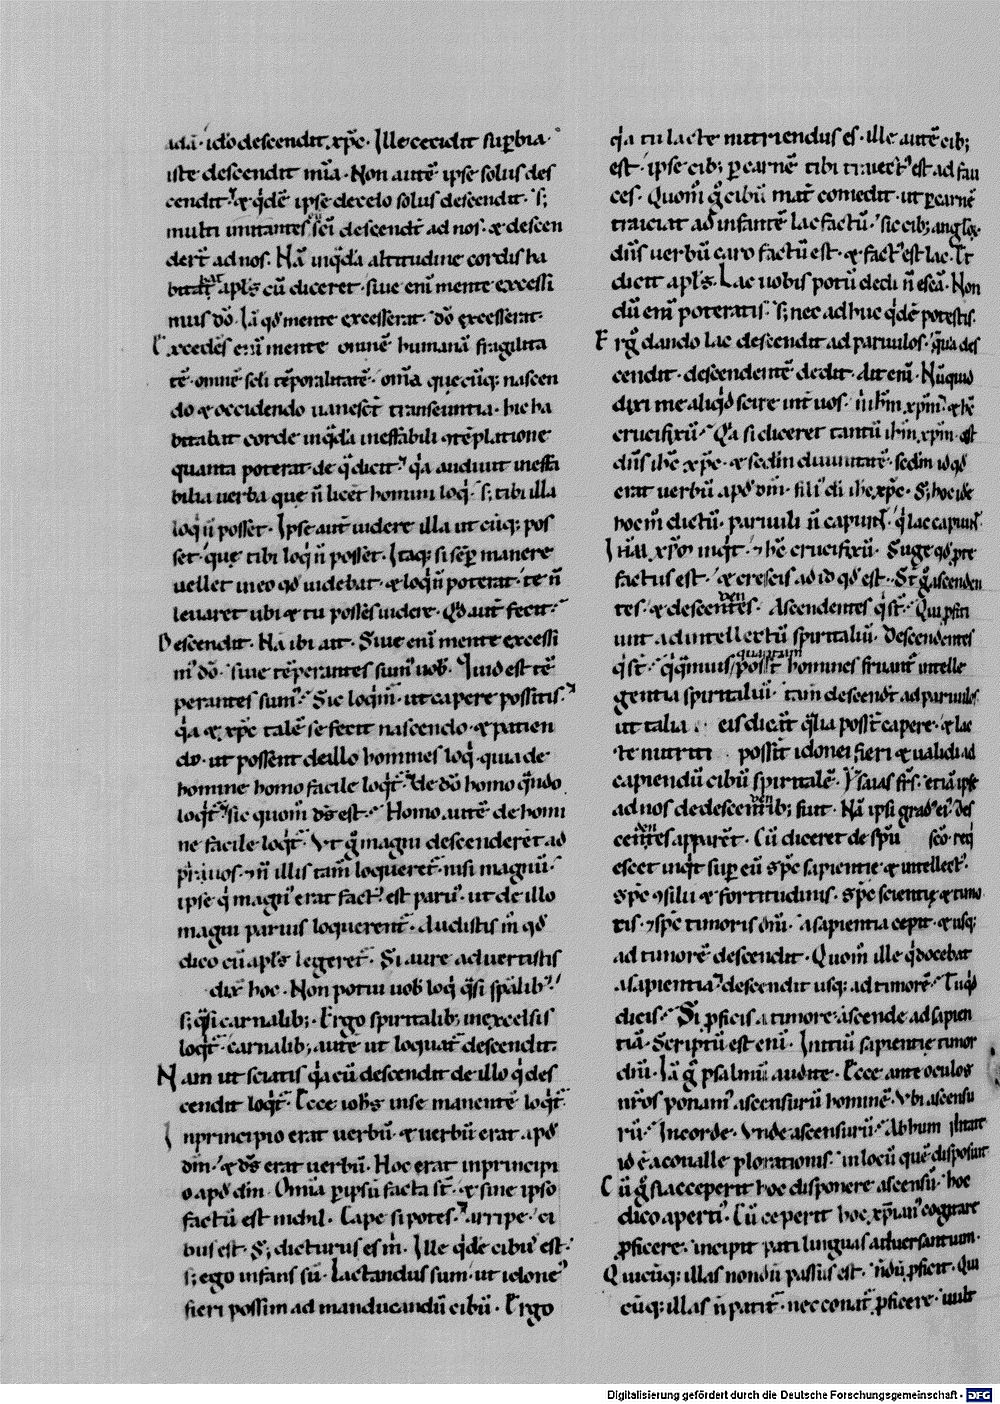 adā · ido descendit xp̄c · Ille cecidit suꝑbia ·
iste descendit mīa · Non autē ipse solus des
cendit · & q̇dē ipse de celo solus descendit · s;
multi imitantes sc̄i descendt̄ ad nos · & descen
dert̄ ad nos · Nā inq̇da altitudine cordis ha
bitat apl̄s cū diceret · siue eni mente excessi
mus dō · Iā qd̄ mente excesserat · dō excesserat ·
Excedēs eni mente omnē humanā fragilita
tē · omnē seli tēporalitatē · om̄a quecūq; nascen
do & occidendo uanesct̄ transeuntia · hic ha
bitabat corde inq̇da ineffabili ɔtēplatione
quanta poterat · de q̇ dicit · q̇a audiuit ineffa
bilia uerba que n̄ licet homini loq̇ · s; tibi illa
loq̇ n̄ posset · Ipse aut̄ uidere illa ut cūq; pos
set · que tibi loq̇ n̄ posset · Itaq; si sēꝑ manere
uellet in eo qd̄ uidebat · & loq̇ n̄ poterat · te n̄
leuaret ubi & tu posses uidere · Qd̄ aut̄ fecit ·
Descendit · Nā ibi ait · Siue eni mente excessi
m' dō · siue tēperantes sum' uob · Quid est tē
perantes sum' · Sic loq̇m̄ · ut capere possitis ·
q̇a & xp̄c talē se fecit nascendo · & patien
do · ut possent de illo homines loq̇ · quia de
homine homo facile loq̇t̄ · de dō homo q̇ndo
loq̇t̄ · sic quom̄ ds̄ est · Homo autē de homi
ne facile loq̇t̄ · Vt g̊ magni descenderēt ad
paruos · & n̄ illis tam̄ loquerent̄ nisi magnū ·
ipse q̇ magn' erat fact' est paru' · ut de illo
magni paruis loquerent̄ · Audistis m̊ qd̄
dico cū apl̄s legeret̄ · Si aure aduertistis
dix̄ hoc · Non potui uob loq̇ q̇si sp̄alib' ·
s; q̇si carnalib; · Ergo spiritalib; in excelsis
loq̇t̄ · carnalib; autē ut loquat̄ descendit ·
Nam ut sciatis q̇a cū descendit de illo q̇ des
cendit loq̇t̄ · Ecce ioh̄s in se manentē loq̇t̄ ·
In principio erat uerbū · & uerbū erat apd̄
dm̄ · & ds̄ erat uerbū · Hoc erat in principi
o apd̄ dm̄ · Om̄ia ꝑ ipsū facta st̄ · & sine ipso
factū est nichil · Cape si potes · arripe · ci
bus est · S; dicturus es m̊ · Ille q̇dē cibus est ·
s; ego infans sū · Lactandus sum · ut idone'
fieri possim ad manducandū cibū · Ergo
q̇a tu lacte nutriendus es · ille autē cib;
est · ipse cib; ꝑ carnē tibi traiect' est ad fau
ces · Quom̄ g̊ cibū mat̄ comedit · ut ꝑ carnē
traiciat ad infantē lac factū · sic cib; anglox̄
dn̄s uerbū caro factū est · & fact' est lac · Et
dicit apl̄s · Lac uobis potū dedi n̄ escā · Non
dū eni poteratis · s; nec ad huc q̇dē potestis ·
Erg̊ dando lac descendit ad paruulos · & quia des
cendit · descendentē dedit · dit eni · Nūquid
dixi me aliqd̄ scire int̄ uos · n̄ ihm̄ xpm̄ · & hc̄
crucifixū · Q̇a si diceret tantū ihm̄ xpm̄ · est
dn̄s ihc̄ xp̄c · & sedm̄ diuinitatē · sedm̄ id qd̄
erat uerbū apd̄ dm̄ · fili' di ihc̄ xp̄c · S; hoc ide
hoc m̊ dictū · paruuli n̄ capiunt · q̇ lac capiunt ·
Ihm̄ xpm̄ inq̇t · & hc̄ crucifixū · Suge qd̄ ꝑ te
factus est · & crescis ad id qd̄ est · St̄ g̊ ascenden
tes · & descendentes · Ascendentes q̇ st̄ · Qui ꝓfici
unt ad intellectū spiritaliū · Descendentes
q̇ st̄ · q̇ q̇muis quantum posst̄ homines fruant̄ intelle
gentia spiritaliū · tam̄ descendt̄ ad paruulos
ut talia eis dicāt q̇lia posst̄ capere · & lac
te nutriti possit idonei fieri & ualidi ad
capiendū cibū spiritalē · Ysaias frs̄ · etiā ipse
ad nos de descendentib; fuit · Nā ipsi grad' ei' des
cendentes apparēt · Cū diceret de spū scō · req̇
escet inq̇t suꝑ eū sp̄c sapientie & intellect' ·
sp̄c ɔsilii & fortitudinis · sp̄c scientie & pieta
tis · & sp̄c timoris dn̄i · a sapientia cepit · & usq;
ad timorē descendit · Quom̄ ille q̇ docebat
a sapientia descendit usq; ad timorē · Tu q̇
dicis · Si ꝓficis a timore ascende ad sapien
tiā · Scriptū est eni · Initiū sapientie timor
dn̄i · Iā g̊ psalmū audite · Ecce ante oculos
nr̄os ponam' ascensurū hominē · Vbi ascensu
rū · In corde · Vnde ascensurū · Ab humilitate
id ē a conualle plorationis · in locū quē disposuit
Cū g̊ sic acceperit hoc disponere ascensū · hoc
dico aperti' · Cū ceperit hoc xpian' cogitare
ꝓficere · incipit pati linguas aduersantium ·
Quicūq; illas nondū passus est · nondū ꝓficit · Qui
cūq; illas n̄ patit̄ · nec conat̄ ꝓficere · uult
Digitalisierung gefördert durch die Deutsche Forschungsgemeinschaft - DFG